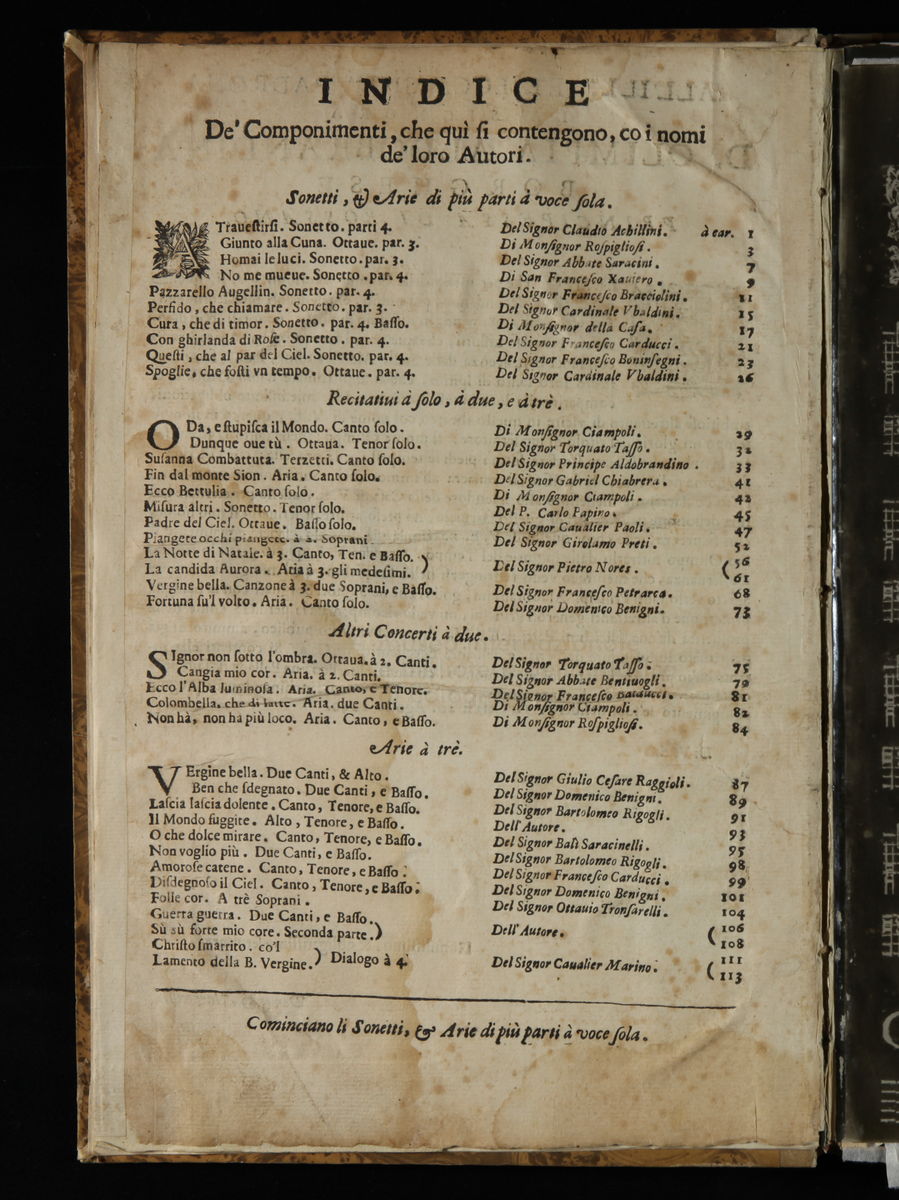 INDICE
De' Componimenti, che quì ſi contengono, co i nomi
de' loro Autori.
Sonetti, & Arie di più parti à voce ſola.
ATraueſtirſi. Sonetto. parti 4. Del Signor Claudio Achillini. à car. 1
Giunto alla Cuna. Ottaue. par. 3. Di Monſignor Roſpiglioſi. 3
Homai le luci. Sonetto. par. 3. Del Signor Abbate Saracini. 7
No me mueue. Sonetto. par. 4. Di San Franceſco Xauiero. 9
Pazzarello Augellin. Sonetto. par. 4. Del Signor Franceſco Bracciolini. 11
Perfido, che chiamare. Sonetto. par. 3. Del Signor Cardinale Vbaldini. 15
Cura, che di timor. Sonetto. par. 4. Baſſo. Di Monſignor della Caſa. 17
Con ghirlanda di Roſe. Sonetto. par. 4. Del Signor Franceſco Carducci. 21
Queſti, che al par del Ciel. Sonetto. par. 4. Del Signor Franceſco Boninſegni. 23
Spoglie, che foſti vn tempo. Ottaue. par. 4. Del Signor Cardinale Vbaldini. 26
Recitatiui à ſolo, à due, e à trè.
ODa, e ſtupiſca il Mondo. Canto ſolo. Di Monſignor Ciampoli. 29
Dunque oue tù. Ottaua. Tenor ſolo. Del Signor Torquato Taſſo. 32
Suſanna Combattuta. Terzetti. Canto ſolo. Del Signor Principe Aldobrandino. 33
Fin dal monte Sion. Aria. Canto ſolo. Del Signor Gabriel Chiabrera. 41
Ecco Bettulia. Canto ſolo. Di Monſignor Ciampoli. 42
Miſura altri. Sonetto. Tenor ſolo. Del P. Carlo Papino. 45
Padre del Ciel. Ottaue. Baſſo ſolo. Del Signor Caualier Paoli. 47
Piangete occhi piangete. à 2. Soprani Del Signor Girolamo Preti. 52
La Notte di Natale. à 3. Canto, Ten. e Baſſo. ) Del Signor Pietro Nores. ( 56
La candida Aurora. Aria à 3. gli medeſimi. ) 61
Vergine bella. Canzone à 3. due Soprani, e Baſſo. Del Signor Franceſco Petrarca. 68
Fortuna ſu'l volto. Aria. Canto ſolo. Del Signor Domenico Benigni. 73
Altri Concerti à due.
SIgnor non ſotto l'ombra. Ottaua. à 2. Canti. Del Signor Torquato Taſſo. 75
Cangia mio cor. Aria. à 2. Canti. Del Signor Abbate Bentiuogli. 79
Ecco l'Alba luminoſa. Aria. Canto, e Tenore. Del Signor Franceſco Balducci. 81
Colombella. che di latte. Aria. due Canti. Di Monſignor Ciampoli. 82
Non hà, non ha più loco. Aria. Canto, e Baſſo. Di Monſignor Roſpiglioſi. 84
Arie à trè.
VErgine bella. Due Canti, & Alto. Del Signor Giulio Ceſare Raggioli. 87
Ben che ſdegnato. Due Canti, e Baſſo. Del Signor Domenico Benigni. 89
Laſcia laſcia dolente. Canto, Tenore, e Baſſo. Del Signor Bartolomeo Rigogli. 91
Il Mondo fuggite. Alto, Tenore, e Baſſo. Dell' Autore. 93
O che dolce mirare. Canto, Tenore, e Baſſo. Del Signor Balì Saracinelli. 95
Non voglio più. Due Canti, e Baſſo. Del Signor Bartolomeo Rigogli. 98
Amoroſe catene. Canto, Tenore, e Baſſo. Del Signor Franceſco Carducci. 99
Diſdegnoſo il Ciel. Canto, Tenore, e Baſſo. Del Signor Domenico Benigni. 101
Folle cor. A trè Soprani. Del Signor Ottauio Tronſarelli. 104
Guerra guerra. Due Canti, e Baſſo. Dell' Autore. ( 106
Sù sù forte mio core. Seconda parte. ) 108
Chriſto ſmarrito. co'l ) Dialogo à 4. Del Signor Caualier Marino. ( 111
Lamento della B. Vergine. ) 113
Cominciano li Sonetti, & Arie di più parti à voce ſola.